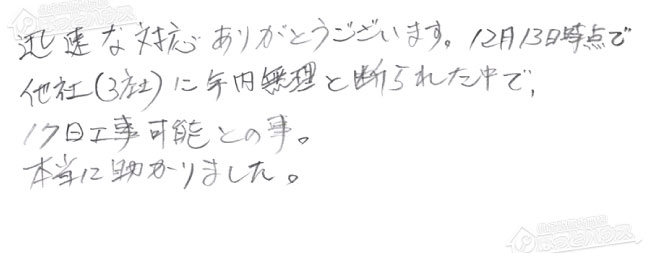 迅速な対応ありがとうございます。12月13日時点で
他社(3社)に年内無理と断られた中で、
17日工事可能との事。
本当に助かりました。